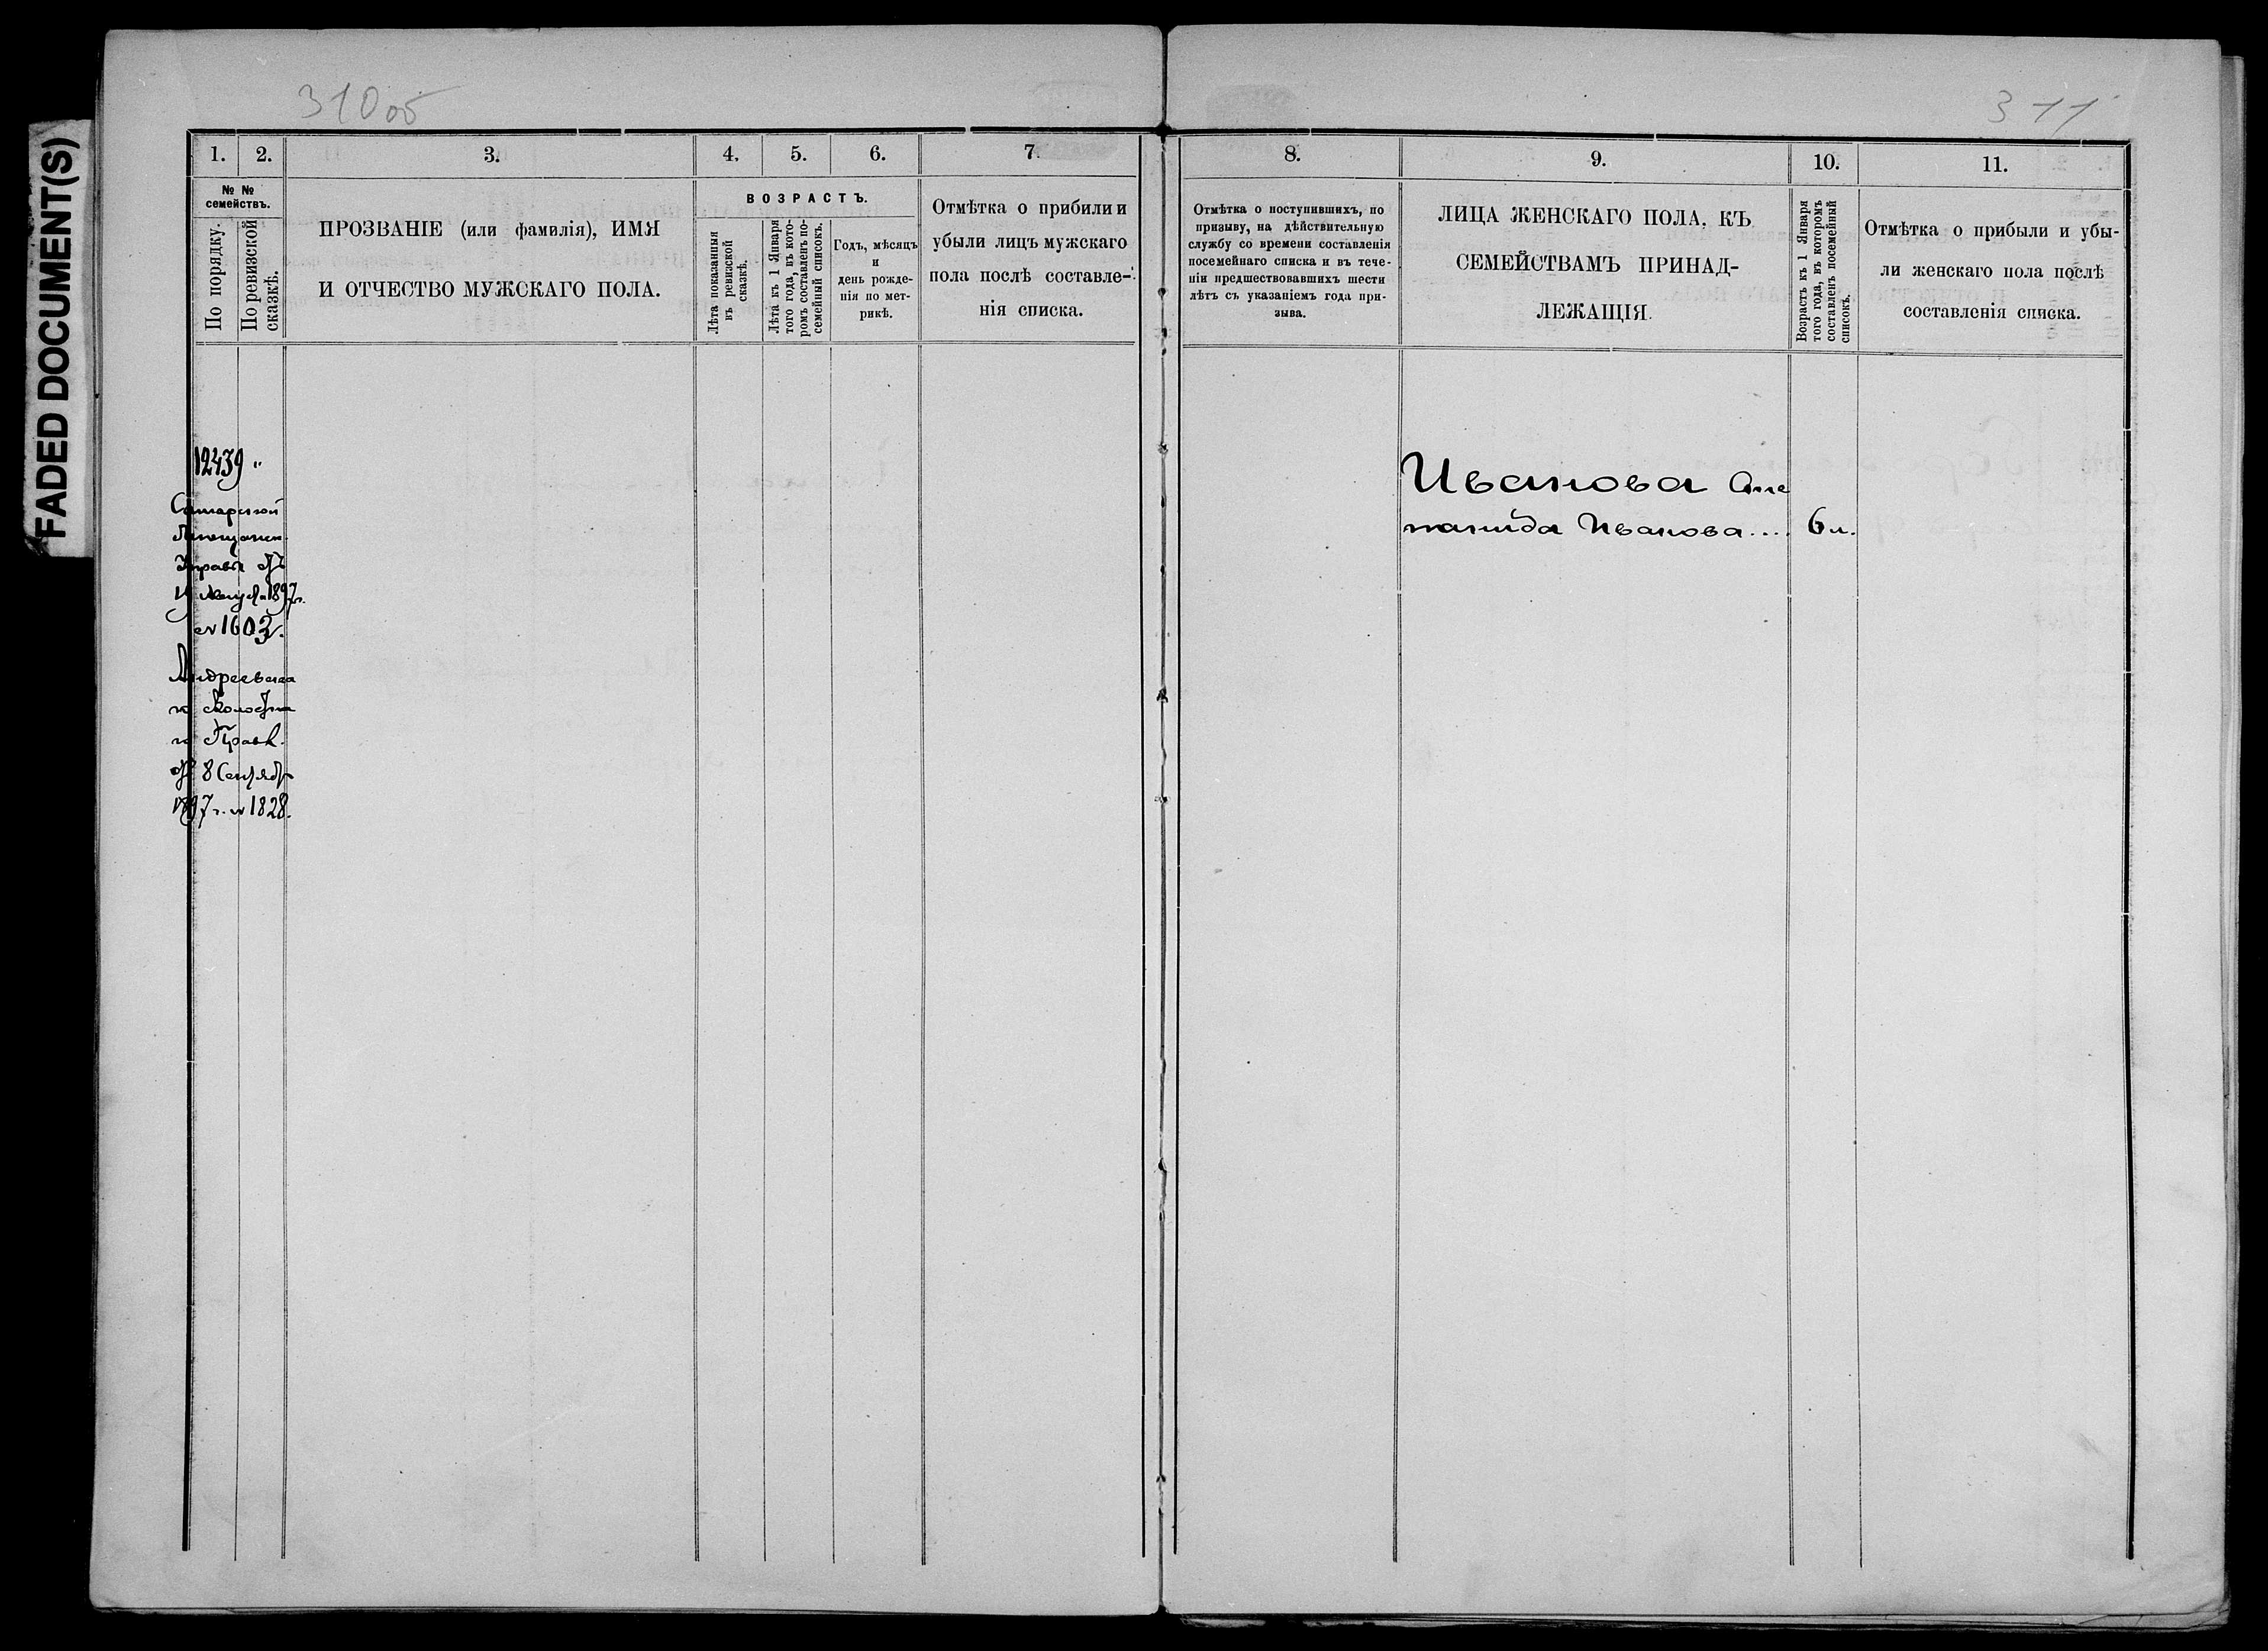 FADED DOCUMENT(S)
310 об
311
1.
2.
3.
4.
5.
6.
7.
№ №
семействъ.
По порядку.
По ревизской
сказкѣ.
ПРОЗВАНІЕ (или фамилія), ИМЯ
И ОТЧЕСТВО МУЖСКАГО ПОЛА.
ВОЗРАСТЪ.
Лѣта показанныя
въ ревизской
сказкѣ.
Лѣта къ 1 Января
того года, въ кото-
ромъ составленъ по-
семейный списокъ.
Годъ, мѣсяцъ
и
день рожде-
нія по мет-
рикѣ.
Отмѣтка о прибыли и
убыли лицъ мужскаго
пола послѣ составле-
нія списка.
12439
Самарской
Управы отъ
19 Августа 1897 г.
№ 1603.
Андреевска
го Волостна
го Правл.
отъ 8 Сентябр
1897 г. № 1828.
8.
9.
10.
11.
Отмѣтка о поступившихъ, по
призыву, на дѣйствительную
службу со времени составленія
посемейнаго списка и въ тече-
ніи предшествовавшихъ шести
лѣтъ съ указаніемъ года при-
зыва.
ЛИЦА ЖЕНСКАГО ПОЛА, КЪ
СЕМЕЙСТВАМЪ ПРИНАД-
ЛЕЖАЩІЯ.
Возрастъ къ 1 Января
того года, въ которомъ
составленъ посемейный
списокъ.
Отмѣтка о прибыли и убы-
ли женскаго пола послѣ
составленія списка.
Иванова Сте
панида Иванова.... 6 л.